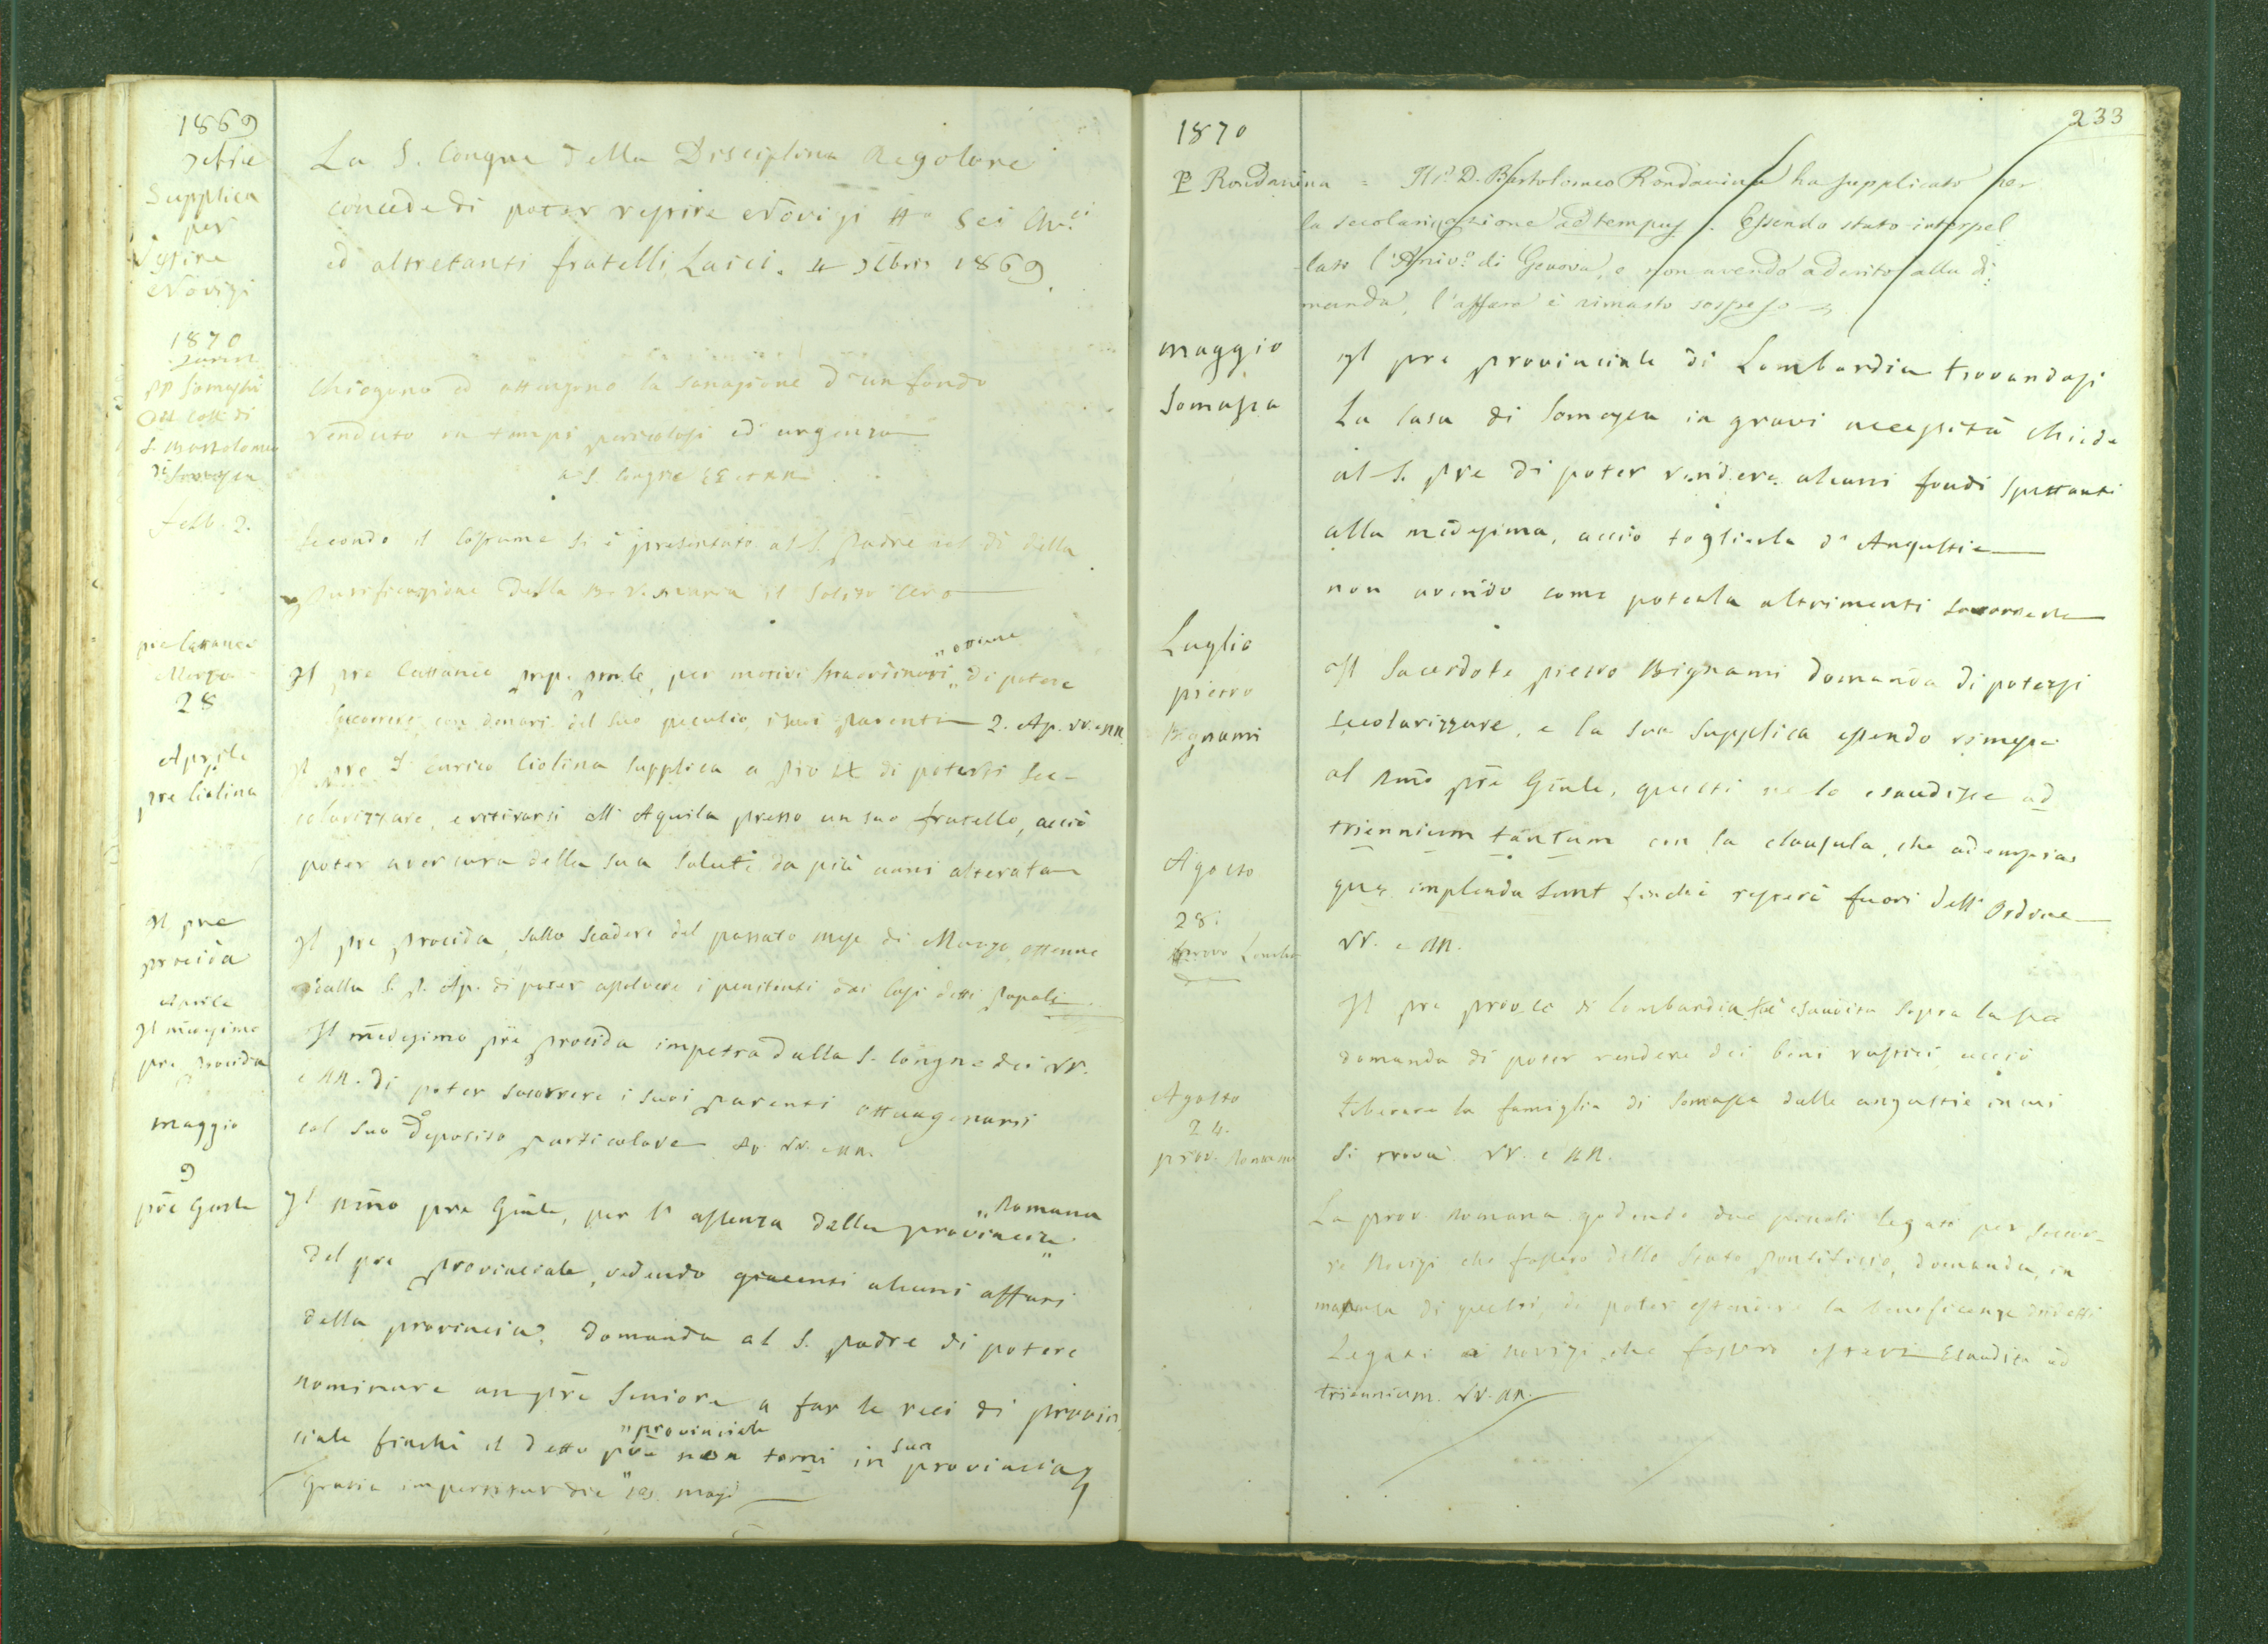 1869
Supplica
per
Vestire
Novizi
La S. Congne della Disciplina Regolare
concede di poter vestire Novizi Sei Ch.ci
ed altretanti fratelli Laici. Xbris 1869.
1870
PP Somaschi
Del Coll. di
S. Bartolomeo
di Somasca
Chiegono ed ottengono la sanazione d'un fondo
venduto in tempi pericolosi ed urgenza
a S. Congne EE e RR
febb. 2.
Secondo il Costume si è presentato al S. Padre nel dì della
Purificazione della B. V. Maria il solito Cero
pre Cattaneo
Marzo
28
"ottiene
Il pre Cattaneo prep. prvle, per motivi straordinari " di potere
Soccorrere con denari del suo peculio i suoi parenti 2. Ap. VV. e RR
Aprile
pre Ciolina
Il pre D. Enrico Ciolina supplica a Pio IX di potersi Sec-
colarizzare, e ritirarsi all'Aquila presso un suo fratello, acciò
poter aver cura della sua Salute da più anni alterata
Il pre
procida
Il pre procida, sullo scadere del passato mese di Marzo ottenne
dalla S. P. Ap. di poter assolvere i penitenti dai Casi detti papali
Aprile
Il medesimo
pre procida
Il medesimo pre procida impetra dalla S. Congne dei VV.
e RR. di poter socorrere i suoi parenti ottuagenarii
col suo Deposito particolare VV. e RR.
maggio
9
pre Gnrle
Il Rmo pre Gnrle, per l'assenza dalla provincia "Romana
del pre provinciale, vedendo giacenti alcuni affari
della provincia, domanda al S. padre di potere
nominare un pre Seniore a far le veci di provin
ciale finchè il detto pre "provinciale non torni in sua provincia
Gratia impertitur die 10 maji
233
1870
P Rondanina = Il P. D. Bartolomeo Rondanina ha supplicato per
la secolarizzazione ad tempus. Essendo stato interpel
lato l'Arciv.o di Genova, e non avendo aderito alla di
manda, l'affare è rimasto sospeso
maggio
Somasca
Il pre provinciale di Lombardia trovandosi
La Casa di Somasca in gravi necessità chiede
al S. pre di poter vendere alcuni fondi spettanti
alla medesima, acciò toglierla d'Angustie
non avendo come poterla altrimenti soccorrere
Luglio
pietro
Bignami
Il Sacerdote pietro Bignami domanda di potersi
secolarizzare, e la sua supplica essendo rimessa
al Rmo pre Gnrle, questi ne lo esaudisse ad
triennium tantum con la clausula, che adempias
quae implenda sunt finchè resterà fuori dell'Ordine
VV. e RR.
Agosto
28.
provo Lomba
Il pre provle di Lombardia fu esaudito sopra la sua
domanda di poter vendere dei beni rustici acciò
liberare la famiglia di Somasca dalle angustie in cui
si trova VV. e RR.
Agosto
24.
prov. Romana
La prov. Romana godendo due piccoli legati per soccor-
re Novizi che fossero dello Stato pontificio, domanda, in
mancanza di questi, di poter estendere la beneficenza dei detti
Legati ai novizi che fossero esteri Esaudita ad
triennium. VV. RR.